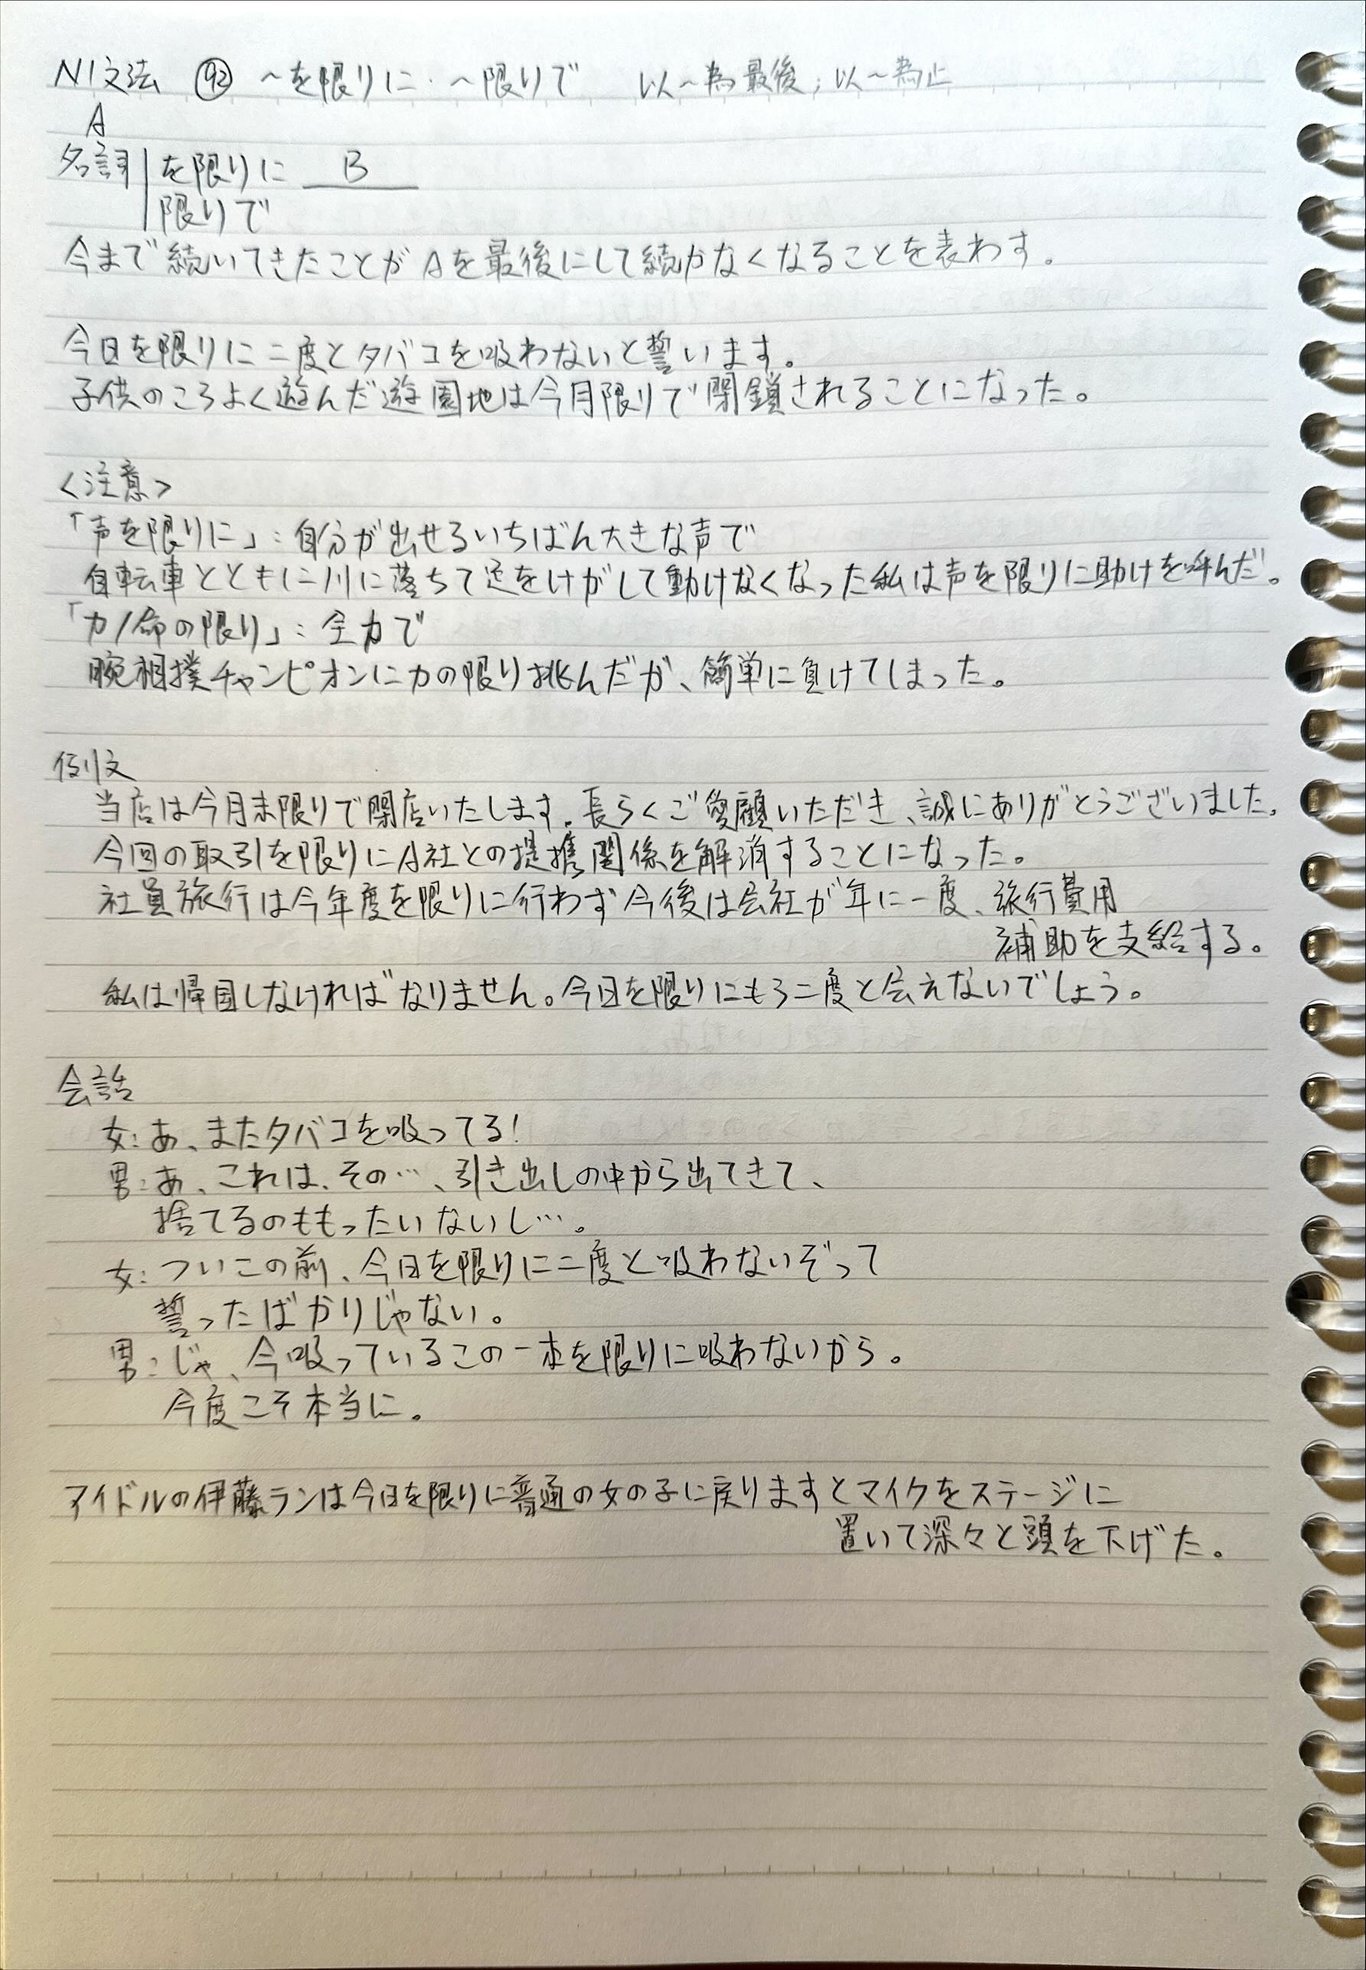 N1文法 ㊷ ～を限りに・～限りで 以～為最後；以～為止
A
名詞 を限りに B
限りで
今まで続いてきたことがAを最後にして続かなくなることを表わす。
今日を限りに二度とタバコを吸わないと誓います。
子供のころよく遊んだ遊園地は今月限りで閉鎖されることになった。
<注意>
「声を限りに」：自分が出せるいちばん大きな声で
自転車とともに川に落ちて足をけがして動けなくなった私は声を限りに助けを呼んだ。
「力/命の限り」：全力で
腕相撲チャンピオンに力の限り挑んだが、簡単に負けてしまった。
例文
当店は今月末限りで閉店いたします。長らくご愛顧いただき、誠にありがとうございました。
今回の取引を限りにA社との提携関係を解消することになった。
社員旅行は今年度を限りに行わず今後は会社が年に一度、旅行費用
補助を支給する。
私は帰国しなければなりません。今日を限りにもう二度と会えないでしょう。
会話
女：あ、またタバコを吸ってる！
男：あ、これは、その…、引き出しの中から出てきて、
捨てるのももったいないし…。
女：ついこの前、今日を限りに二度と吸わないぞって
誓ったばかりじゃない。
男：じゃ、今吸っているこの一本を限りに吸わないから。
今度こそ本当に。
アイドルの伊藤ランは今日を限りに普通の女の子に戻りますとマイクをステージに
置いて深々と頭を下げた。